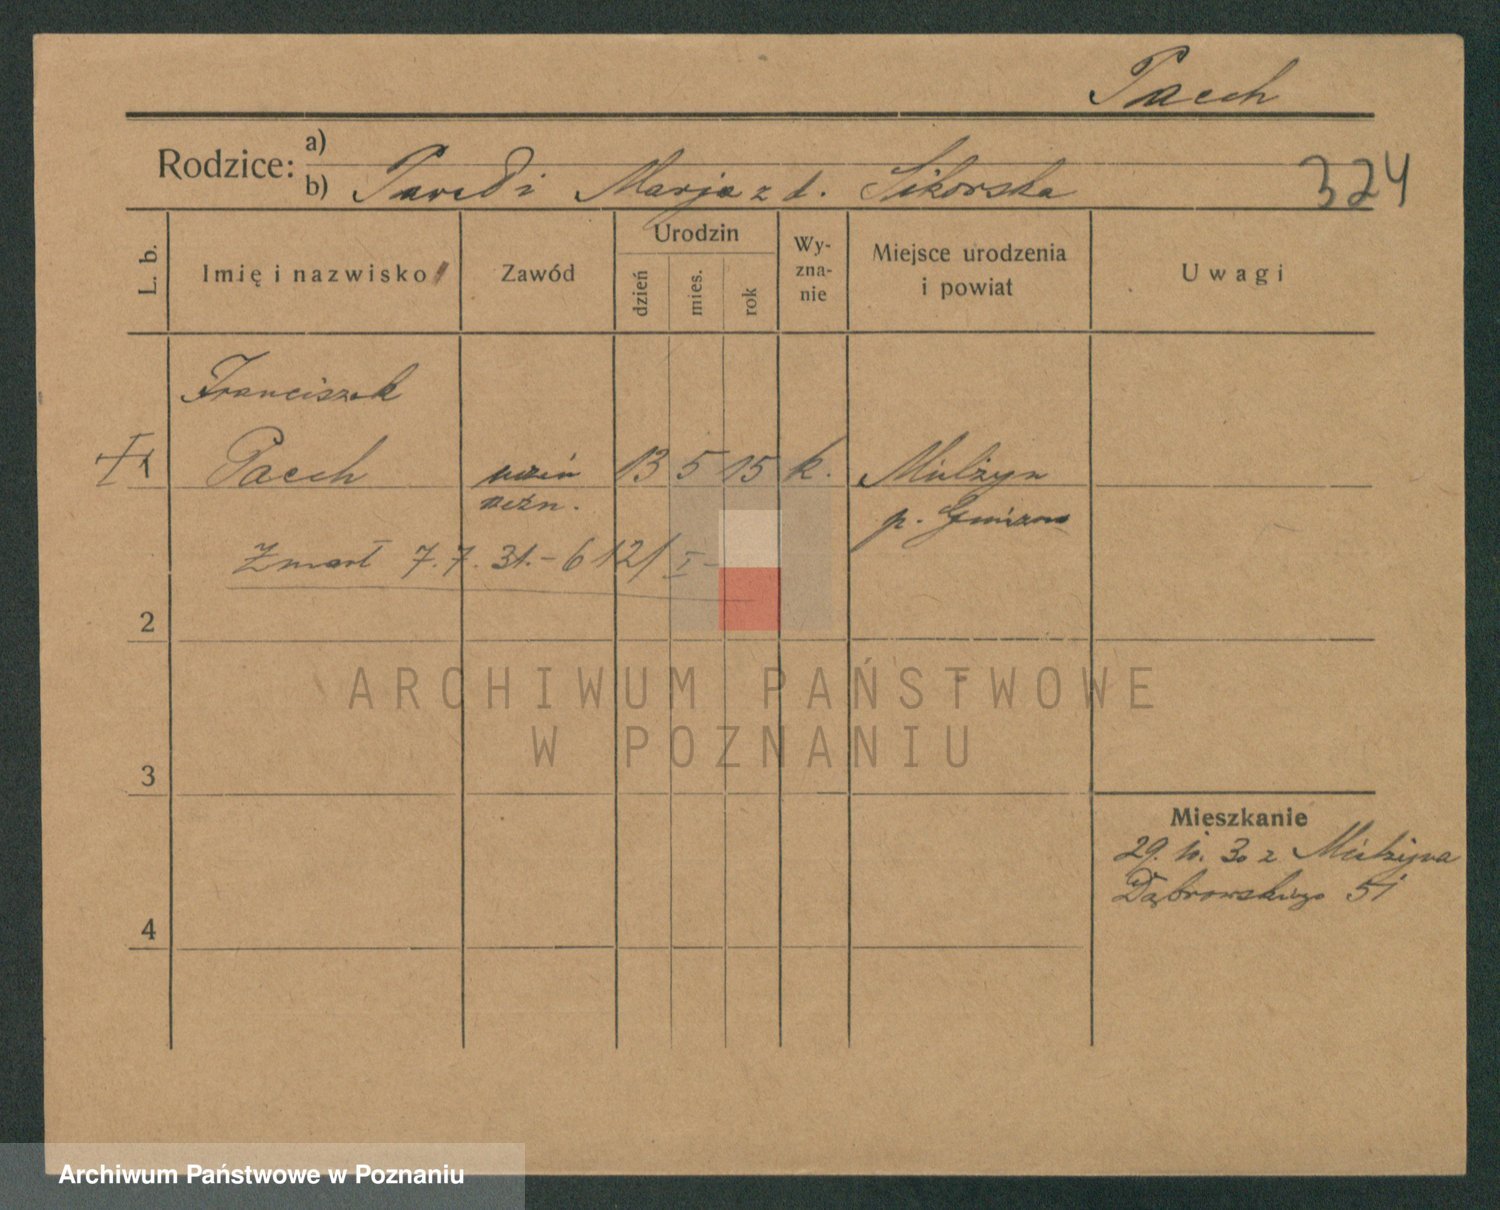 Pacch
Rodzice:
a)
b) Paweł i Marja z d. Sikorska
324
L. b.
Imię i nazwisko
Zawód
Urodzin
dzień
mies.
rok
Wy-
zna-
nie
Miejsce urodzenia
i powiat
Uwagi
Franciszek
1 Pacch uczeń 13 5 15 k. Mielżyn
rzeźn. p. Gniezno
Zmarł 7.7.31.- 612/I-
2
3
4
Mieszkanie
29. 10. 30 z Mielżyna
Dąbrowskiego 51
ARCHIWUM PAŃSTWOWE
W POZNANIU
Archiwum Państwowe w Poznaniu